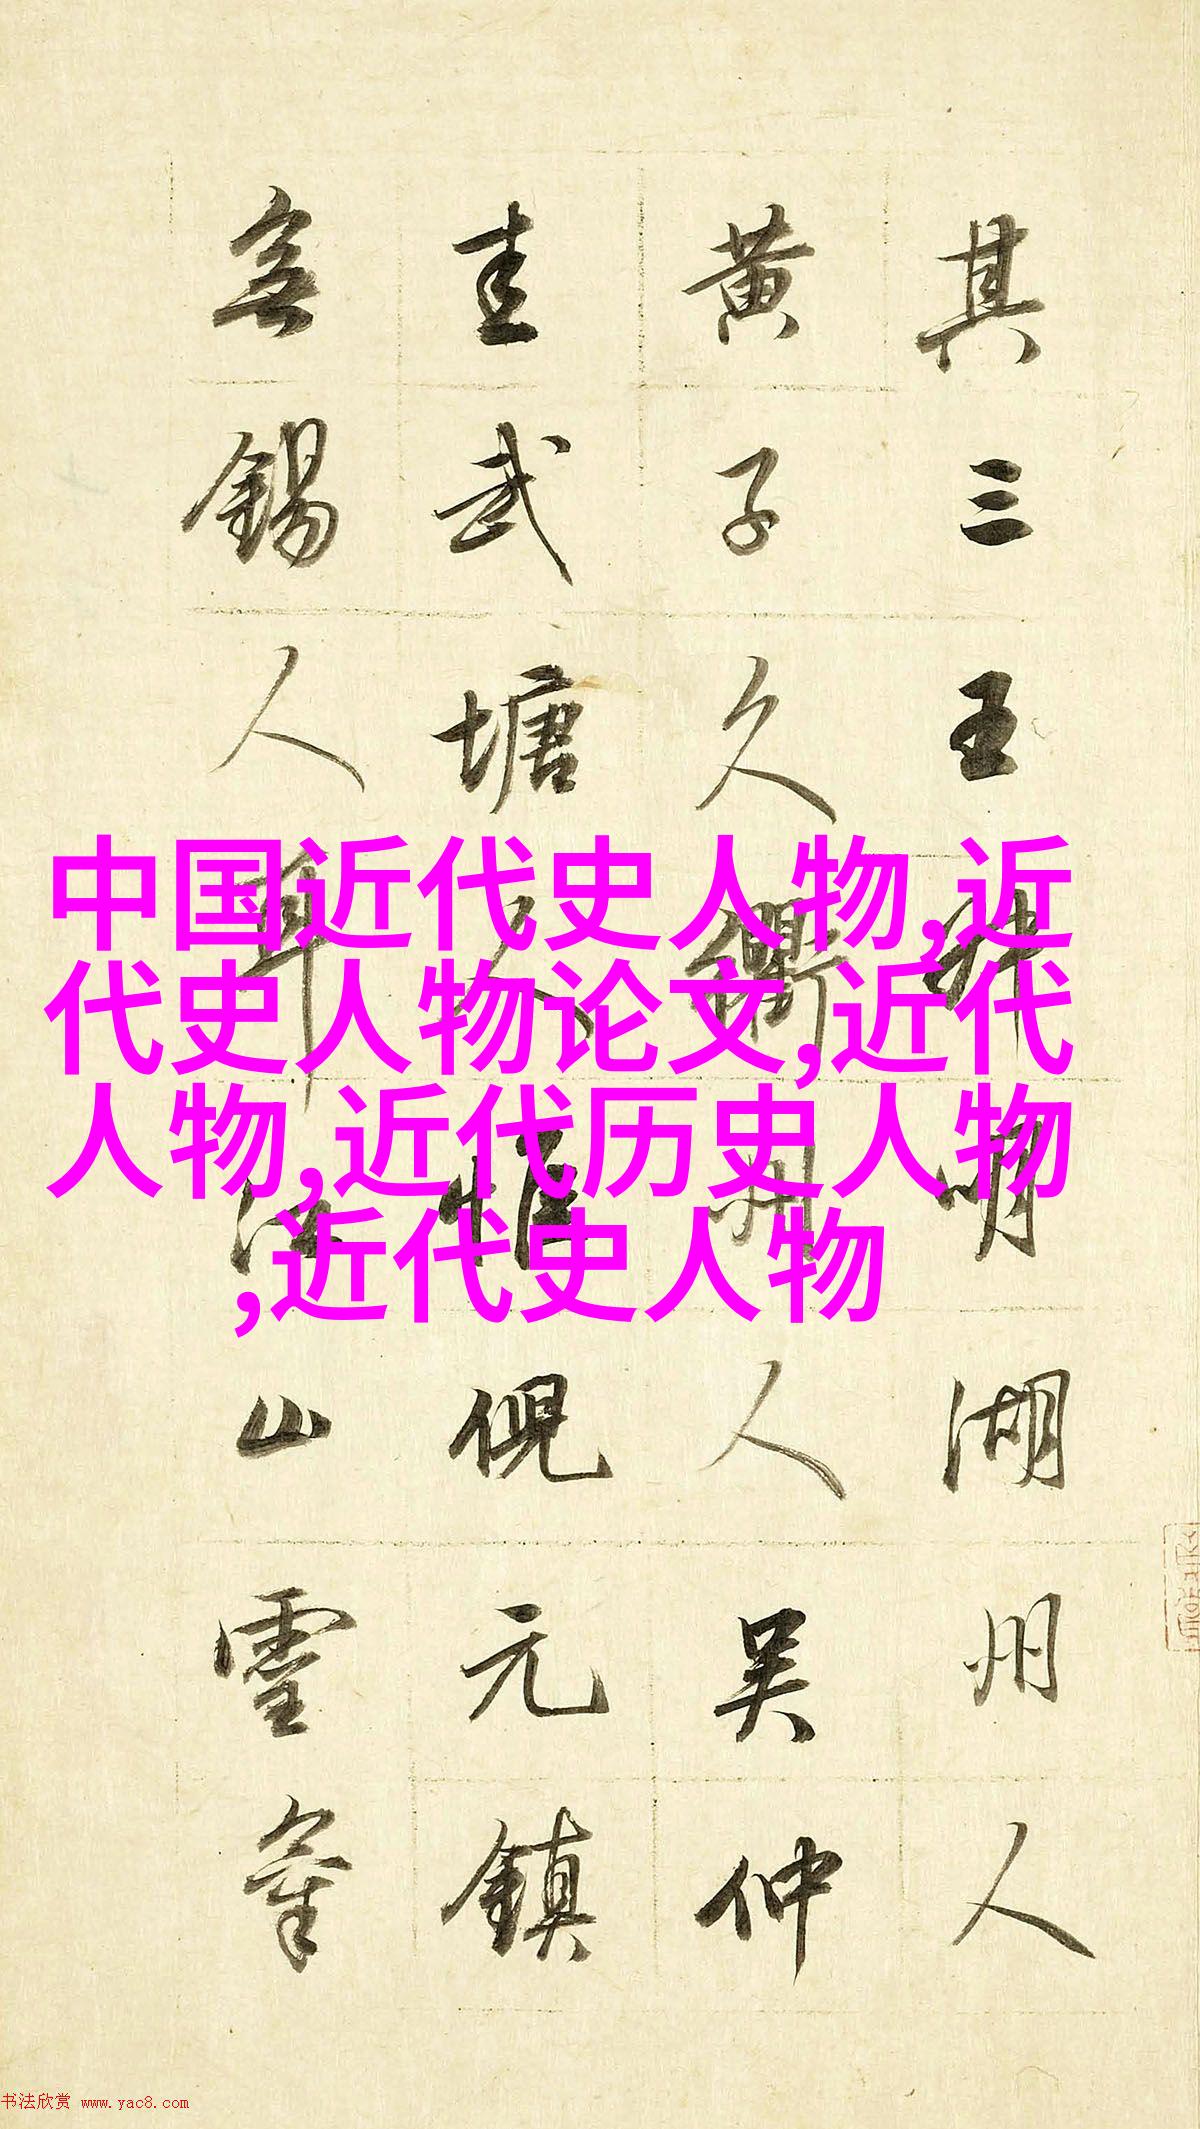 其三王叔明湖州人
黄子久衢州人吴仲
圭武塘人惟倪元鎮
無錫人耳江山靈
中国近代史人物,近
代史人物论文,近代
人物,近代历史人物
,近代史人物
书法欣赏 www.yac8.com